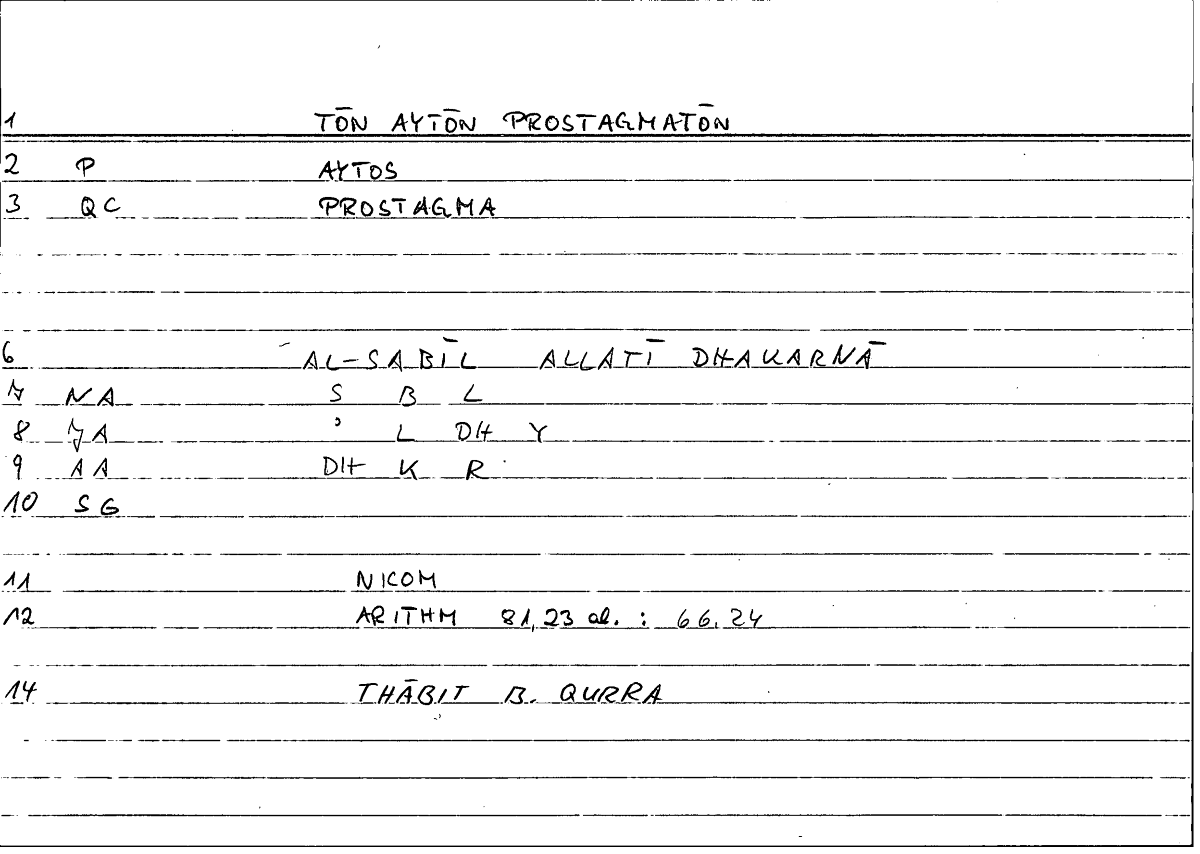 1 TŌN AYTŌN PROSTAGMATŌN
2 P AYTOS
3 QC PROSTAGMA
6 AL-SABĪL ALLATĪ DHAKARNĀ
7 NA S B L
8 JA ʾ L DH Y
9 AA DH K R
10 SG
11 NICOM
12 ARITHM 81,23 al. : 66,24
14 THĀBIT B. QURRA